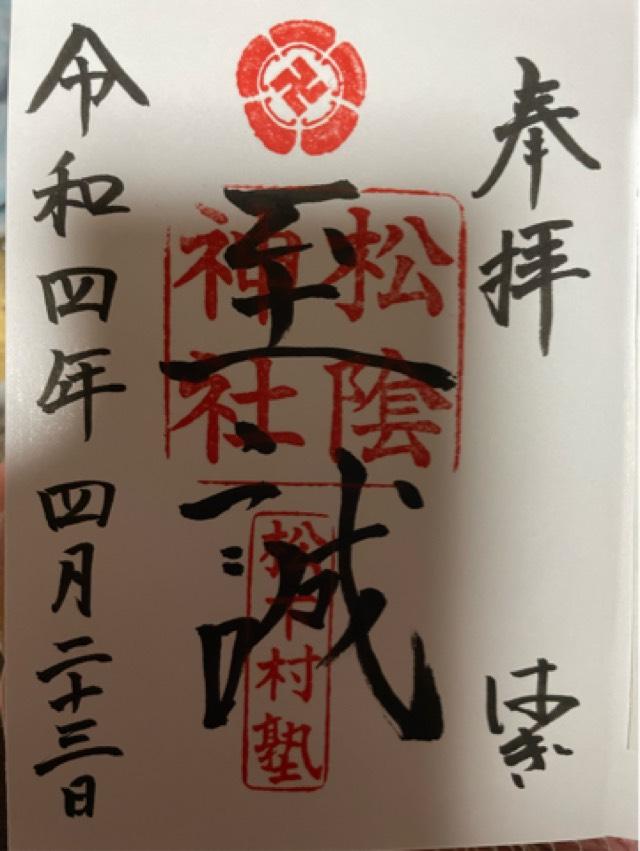 奉拝
はぎ
松陰
神社
至誠
松下村塾
令和四年 四月二十三日